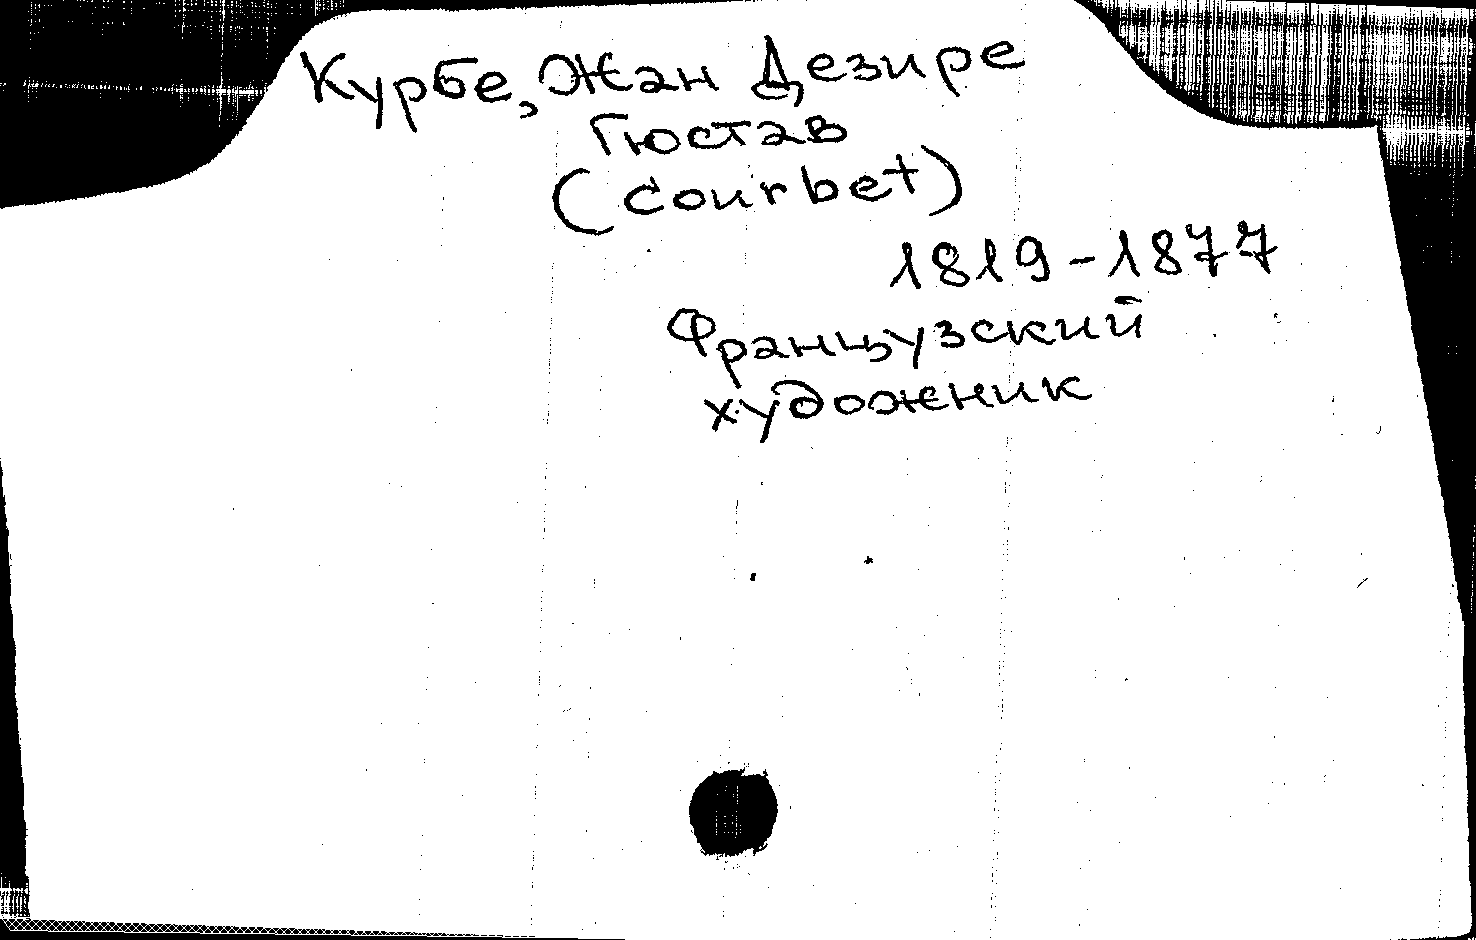 Курбе, Жан Дезире
Гюстав
(Courbet)
1819-1877
Французский
художник